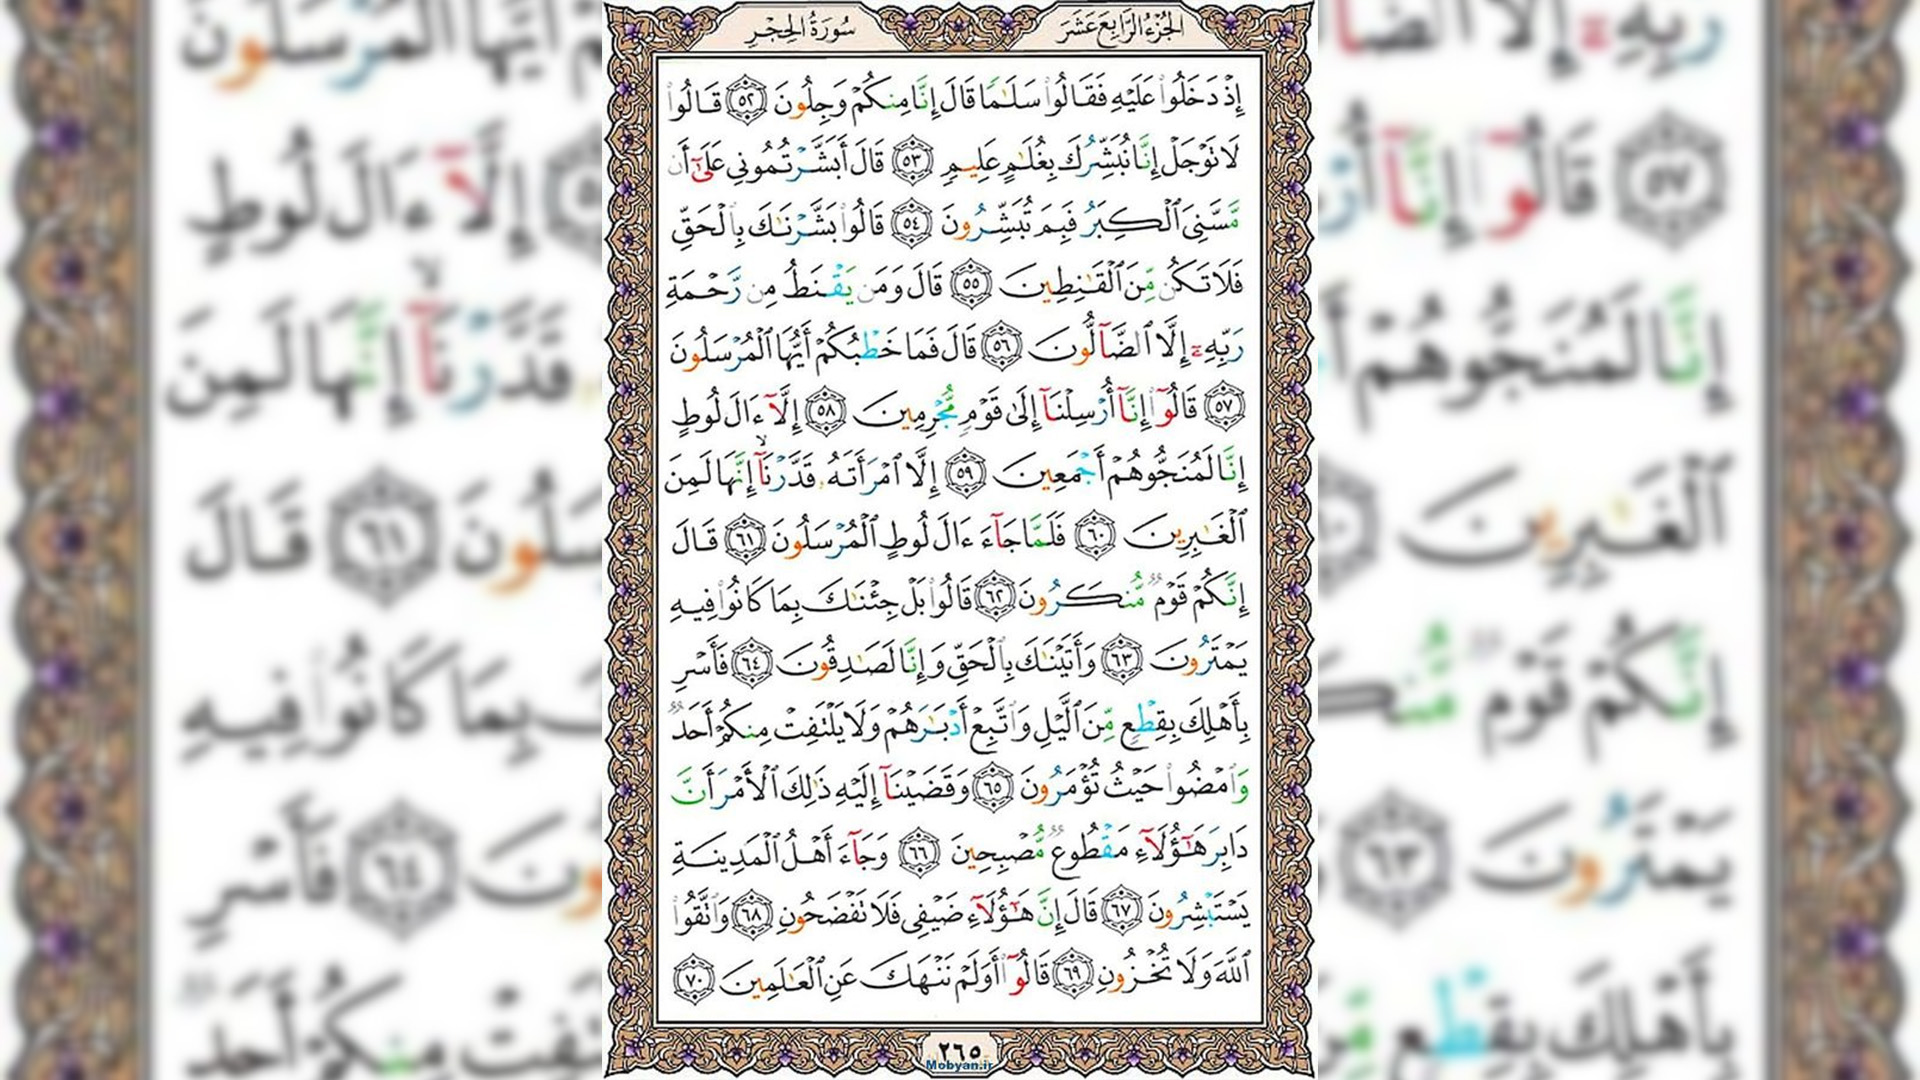 الجزء الرابع عشر
سورة الحجر
إِذْ دَخَلُوا۟ عَلَيْهِ فَقَالُوا۟ سَلَٰمًا قَالَ إِنَّا مِنكُمْ وَجِلُونَ ٥٢ قَالُوا۟
لَا تَوْجَلْ إِنَّا نُبَشِّرُكَ بِغُلَٰمٍ عَلِيمٍ ٥٣ قَالَ أَبَشَّرْتُمُونِى عَلَىٰٓ أَن
مَّسَّنِىَ ٱلْكِبَرُ فَبِمَ تُبَشِّرُونَ ٥٤ قَالُوا۟ بَشَّرْنَٰكَ بِٱلْحَقِّ
فَلَا تَكُن مِّنَ ٱلْقَٰنِطِينَ ٥٥ قَالَ وَمَن يَقْنَطُ مِن رَّحْمَةِ
رَبِّهِۦٓ إِلَّا ٱلضَّآلُّونَ ٥٦ قَالَ فَمَا خَطْبُكُمْ أَيُّهَا ٱلْمُرْسَلُونَ
٥٧ قَالُوٓا۟ إِنَّآ أُرْسِلْنَآ إِلَىٰ قَوْمٍ مُّجْرِمِينَ ٥٨ إِلَّآ ءَالَ لُوطٍ
إِنَّا لَمُنَجُّوهُمْ أَجْمَعِينَ ٥٩ إِلَّا ٱمْرَأَتَهُۥ قَدَّرْنَآ ۙ إِنَّهَا لَمِنَ
ٱلْغَٰبِرِينَ ٦٠ فَلَمَّا جَآءَ ءَالَ لُوطٍ ٱلْمُرْسَلُونَ ٦١ قَالَ
إِنَّكُمْ قَوْمٌ مُّنكَرُونَ ٦٢ قَالُوا۟ بَلْ جِئْنَٰكَ بِمَا كَانُوا۟ فِيهِ
يَمْتَرُونَ ٦٣ وَأَتَيْنَٰكَ بِٱلْحَقِّ وَإِنَّا لَصَٰدِقُونَ ٦٤ فَأَسْرِ
بِأَهْلِكَ بِقِطْعٍ مِّنَ ٱلَّيْلِ وَٱتَّبِعْ أَدْبَٰرَهُمْ وَلَا يَلْتَفِتْ مِنكُمْ أَحَدٌ
وَٱمْضُوا۟ حَيْثُ تُؤْمَرُونَ ٦٥ وَقَضَيْنَآ إِلَيْهِ ذَٰلِكَ ٱلْأَمْرَ أَنَّ
دَابِرَ هَٰٓؤُلَآءِ مَقْطُوعٌ مُّصْبِحِينَ ٦٦ وَجَآءَ أَهْلُ ٱلْمَدِينَةِ
يَسْتَبْشِرُونَ ٦٧ قَالَ إِنَّ هَٰٓؤُلَآءِ ضَيْفِى فَلَا تَفْضَحُونِ ٦٨ وَٱتَّقُوا۟
ٱللَّهَ وَلَا تُخْزُونِ ٦٩ قَالُوٓا۟ أَوَلَمْ نَنْهَكَ عَنِ ٱلْعَٰلَمِينَ ٧٠
٢٦٥
Mobyan.ir